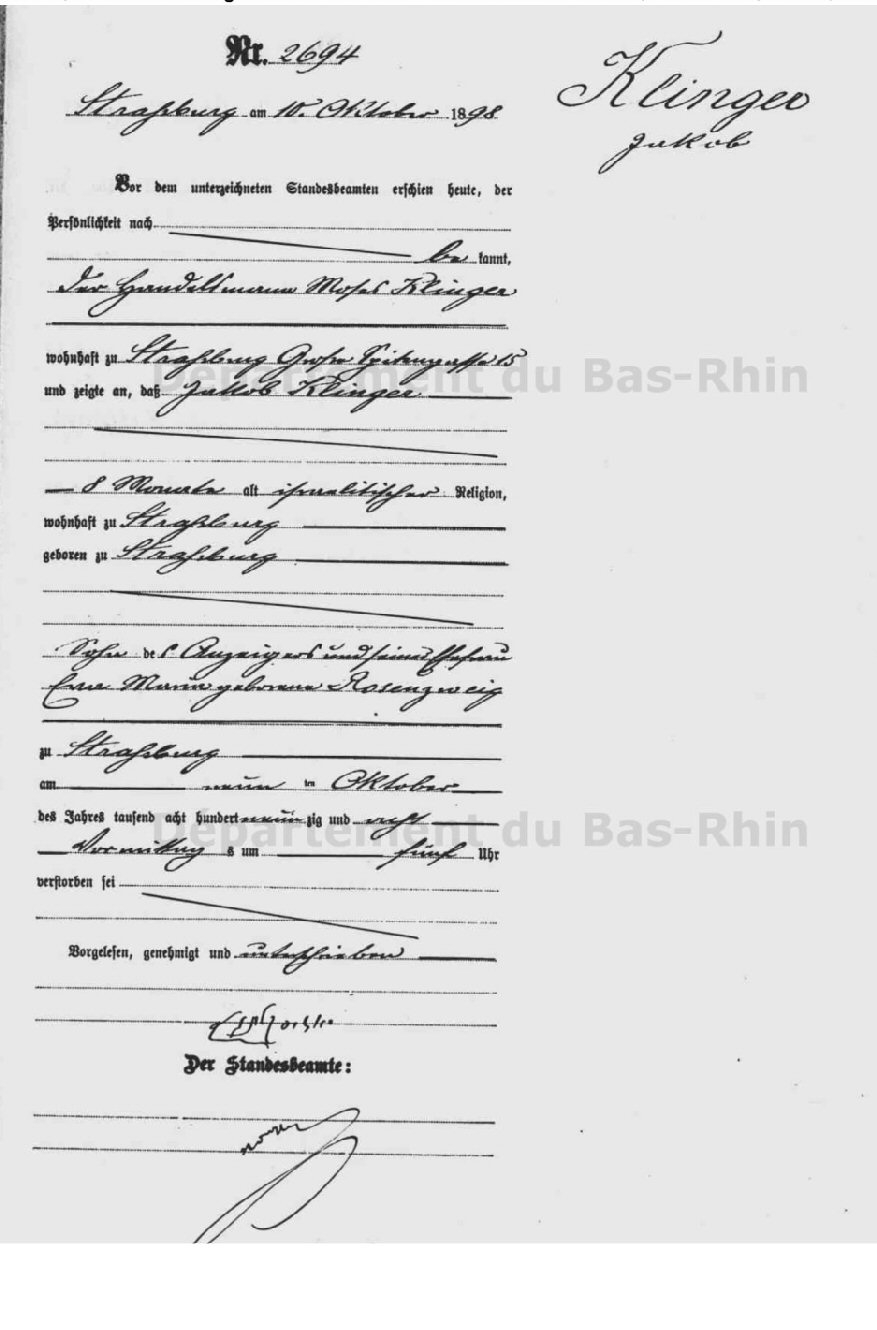 Nr. 2694
Klinger
Jakob
Straßburg am 10. Oktober 1898
Vor dem unterzeichneten Standesbeamten erschien heute, der
Persönlichkeit nach
be kannt,
der Handelsmann Moses Klinger
wohnhaft zu Straßburg Große 15
und zeigte an, daß Jakob Klinger
Département du Bas-Rhin
8 Monate alt israelitischer Religion,
wohnhaft zu Straßburg
geboren zu Straßburg
Sohn des Anzeigers und seiner Ehefrau
geborene Rosenzweig
zu Straßburg
am neun ten Oktober
des Jahres tausend acht hundert neun zig und acht
Département du Bas-Rhin
Vormittag s um fünf Uhr
verstorben sei
Vorgelesen, genehmigt und unterschrieben
Der Standesbeamte: